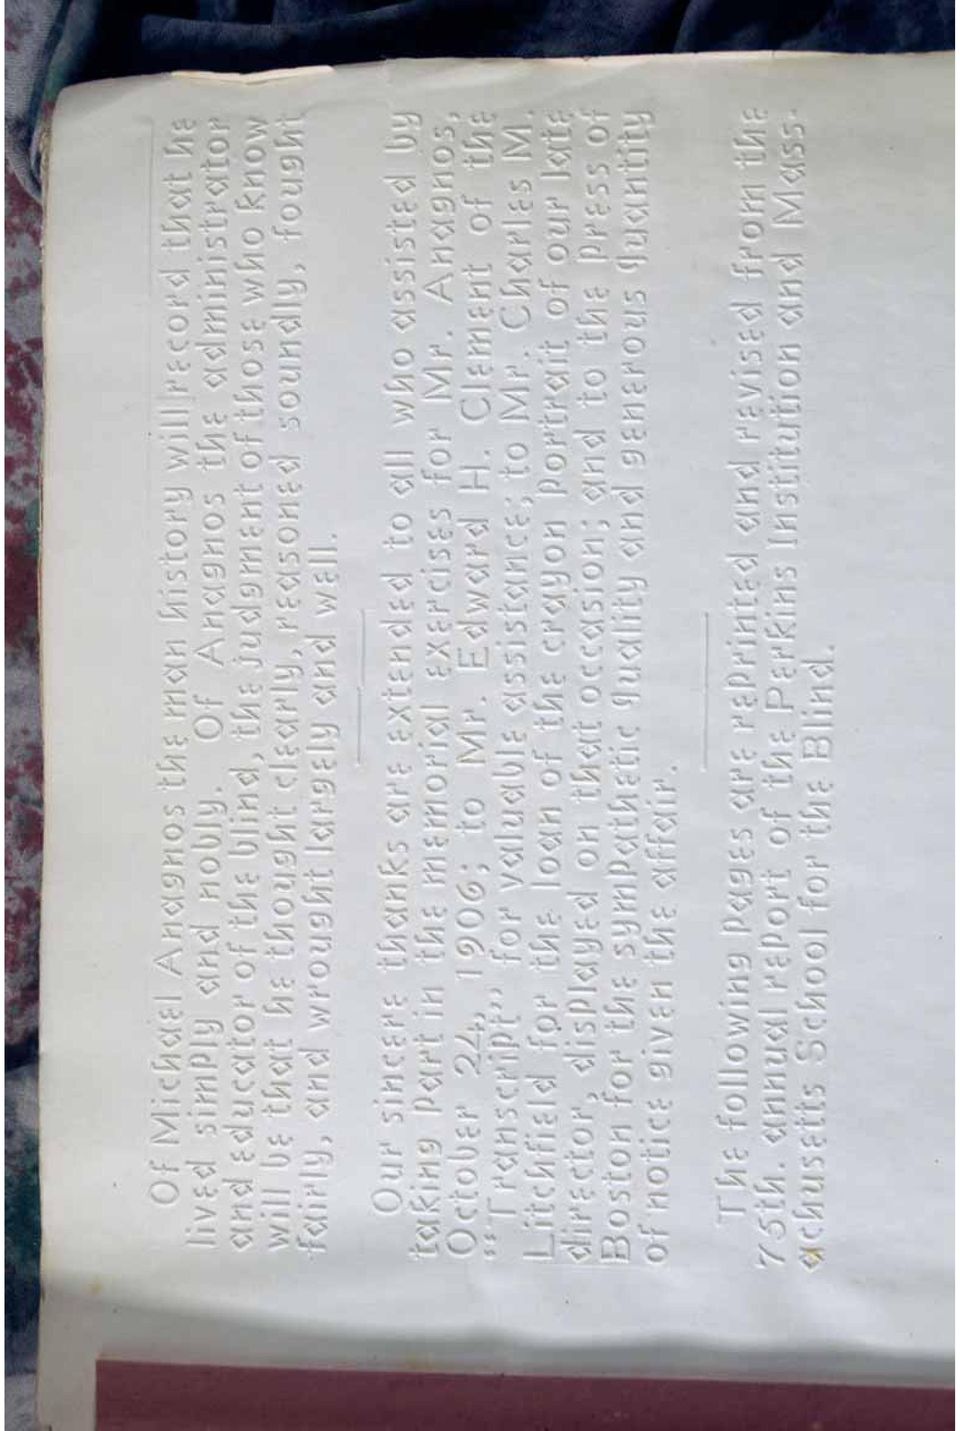 Of Michael Anagnos the man history will record that he
lived simply and nobly. Of Anagnos the administrator
and educator of the blind, the judgment of those who know
will be that he thought clearly, reasoned soundly, fought
fairly, and wrought largely and well.
Our sincere thanks are extended to all who assisted by
taking part in the memorial exercises for Mr. Anagnos,
October 24, 1906; to Mr. Edward H. Clement of the
"Transcript", for valuable assistance; to Mr. Charles M.
Litchfield for the loan of the crayon portrait of our late
director, displayed on that occasion; and to the press of
Boston for the sympathetic quality and generous quantity
of notice given the affair.
The following pages are reprinted and revised from the
75th. annual report of the Perkins Institution and Mass-
achusetts School for the Blind.